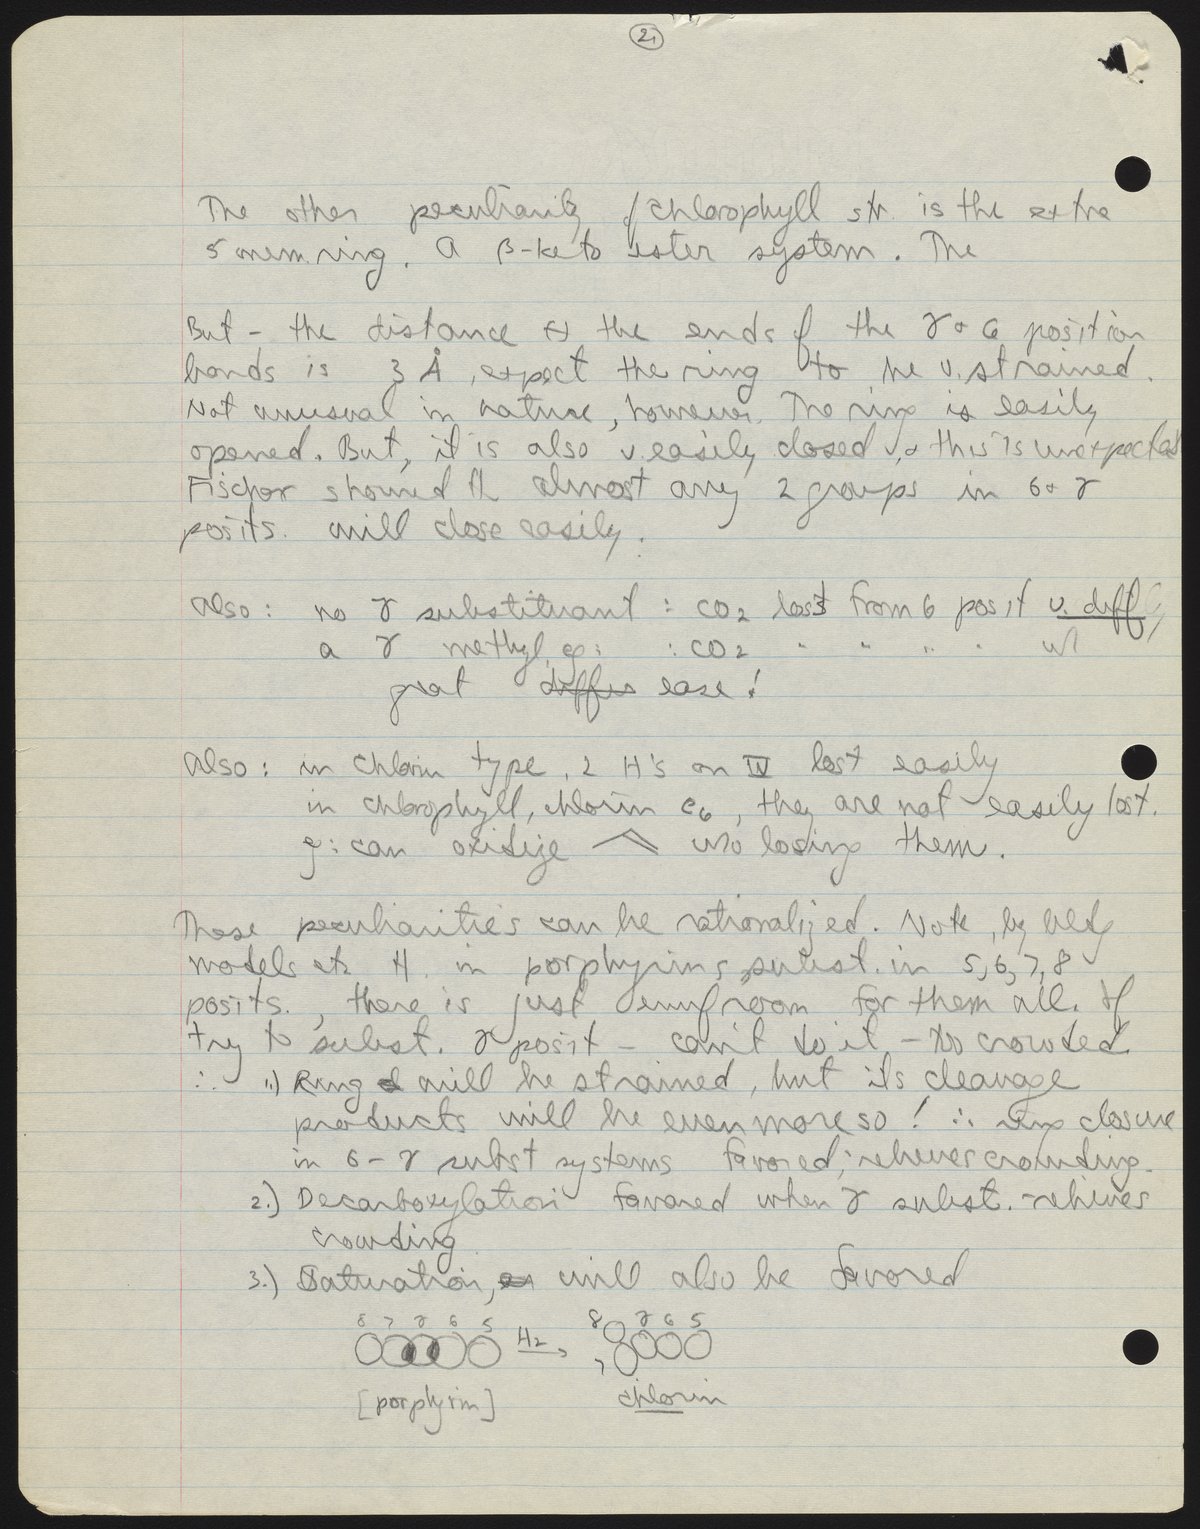 2,
The other peculiarity of chlorophyll str. is the extra
5 mem. ring. A β-keto ester system. The
But - the distance ↔ the ends of the γ & 6 position
bonds is 3 Å, expect the ring to be v. strained.
Not unusual in nature, however. The ring is easily
opened. But, it is also v. easily closed, & this is unexpected
Fischer showed th almost any 2 groups in 6 & γ
posits. will close easily.
Also: no γ substituent : CO2 lost from 6 posit v. diffly
a γ methyl, eg: : CO2 " " " " w/
great diffic ease!
Also: in chlorin type, 2 H's on IV lost easily
in chlorophyll, chlorin e6, they are not easily lost.
eg: can oxidize w/o losing them.
These peculiarities can be rationalized. Note, by bldg
models etc H. in porphyrins subst. in 5, 6, 7, 8
posits., there is just enuf room for them all. If
try to subst. γ posit - can't do it - too crowded.
∴ 1.) Ring will be strained, but its cleavage
products will be even more so! ∴ ring closure
in 6-γ subst systems favored; relieves crowding.
2.) Decarboxylation favored when γ subst. relieves
crowding
3.) Saturation, will also be favored
8 7 γ 6 5 H2 8 γ 6 5
7
[porphyrin] chlorin